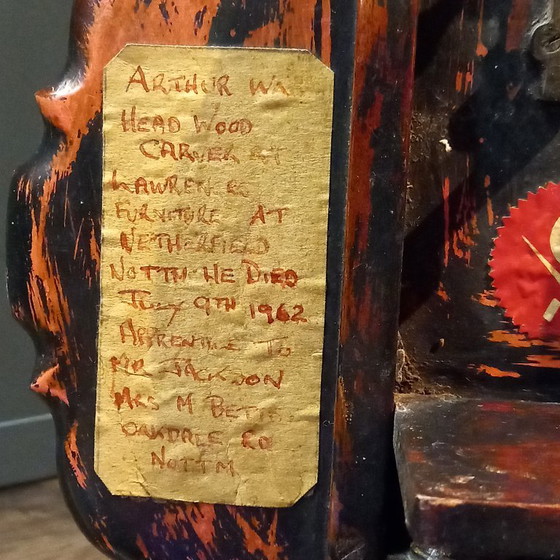 ARTHUR
HEAD WOOD
CARVER AT
LAWREN
FURNITURE AT
NETHERFIELD
NOTTM. HE DIED
9TH 1962
APPRENTICE TO
MR JACKSON
MRS M BETTS
OAKDALE RD
NOTTM